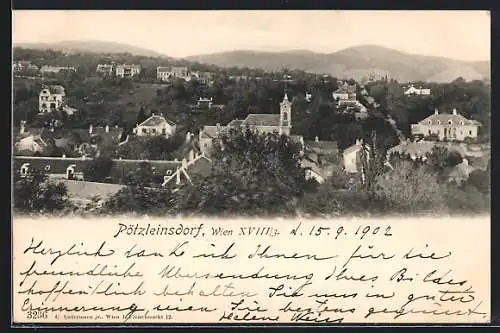 Pötzleinsdorf, Wien XVIII/3. d. 15. 9. 1902
Herzlich dank ich Ihnen für die
freundliche Übersendung Ihres Bildes,
hoffentlich behalten Sie uns in guter
Erinnerung wien Sie bestens gegrüsst
3256 C. Ledermann jr., Wien I. Fleischmarkt 12. Helene